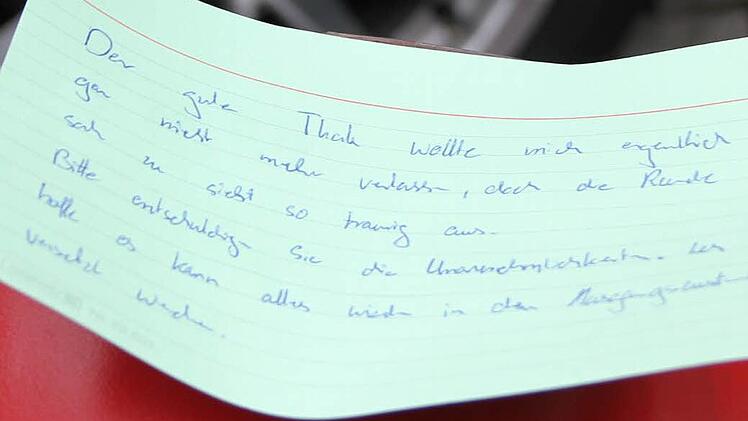 Der gute Thak wollte mich eigentlich
gar nicht mehr verlassen, doch die Runde
sah zu sieht so traurig aus.
Bitte entschuldigen Sie die Unannehmlichkeiten. Ich
hoffe es kann alles wieder in den Ausgangszust
versetzt werden.